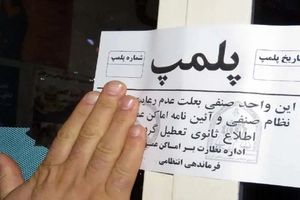 تاریخ پلمپ شماره پلمپ
پلمپ
این واحد صنفی بعلت عدم رعایت
نظام صنفی و آئین نامه اماکن
اطلاع ثانوی تعطیل
اداره نظارت بر اماکن
فرماندهی انتظامی